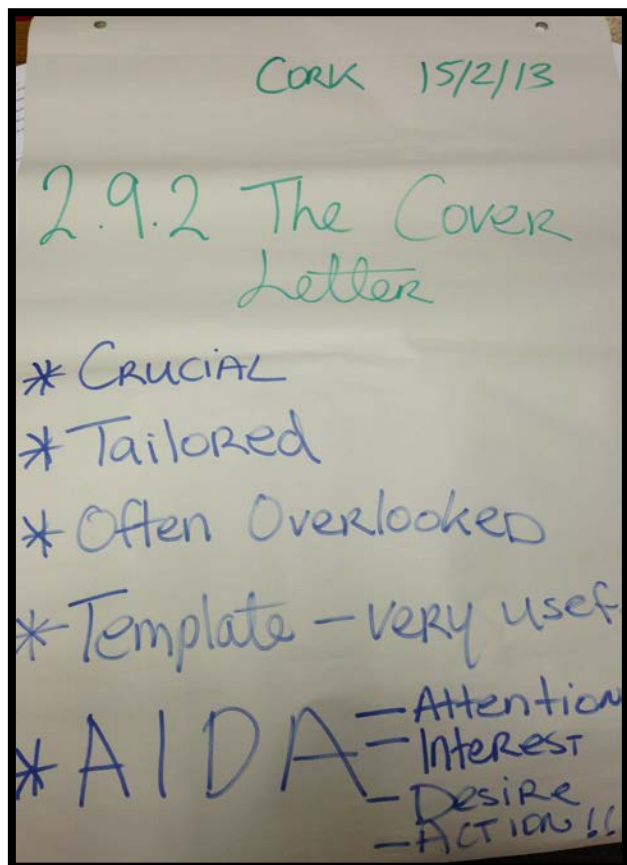 CORK 15/2/13
2.9.2 The Cover
Letter
* CRUCIAL
* Tailored
* Often Overlooked
* Template - very usef
* AIDA - Attention
- Interest
- Desire
- ACTION!!